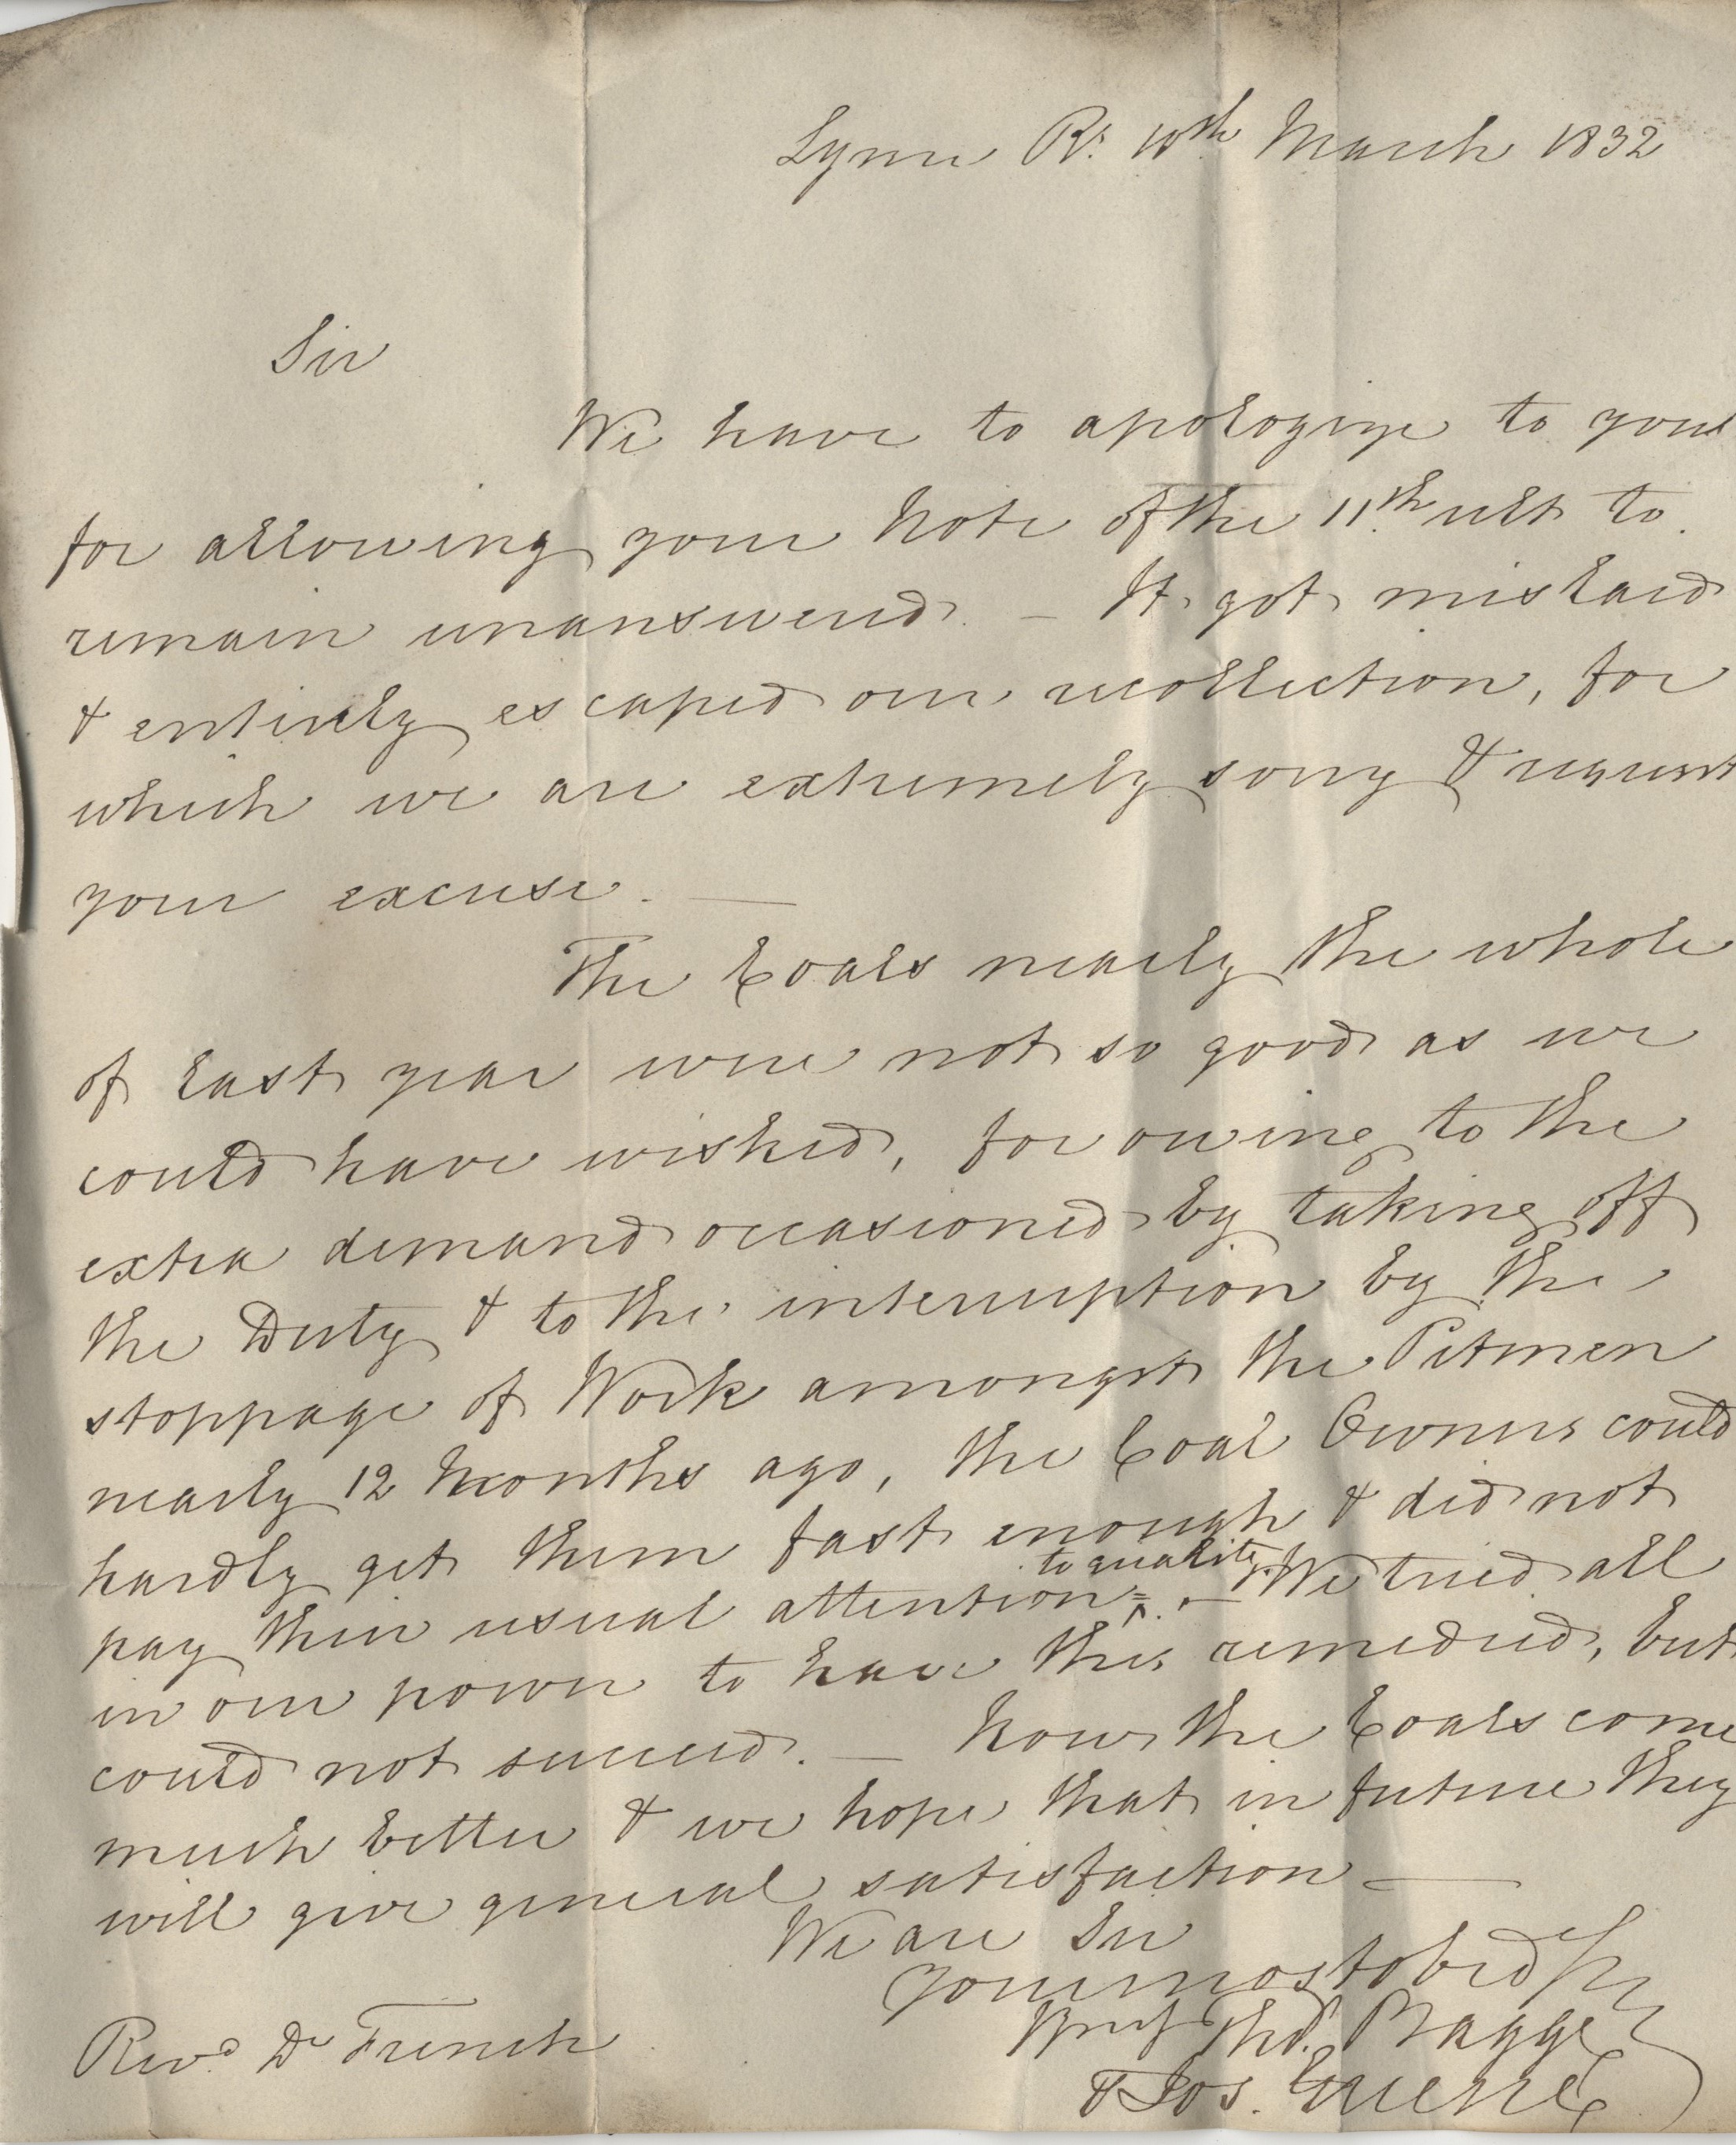 Lynn Rs. 10th March 1832
Sir
We have to apologize to you
for allowing your Note of the 11th ult to
remain unanswered. — It got mislaid
& entirely escaped our recollection, for
which we are extremely sorry & request
your excuse. —
The Coals nearly the whole
of last year were not so good as we
could have wished, for owing to the
extra demand occasioned by taking off
the Duty & to the interruption by the
stoppage of Work amongst the Pitmen
nearly 12 Months ago, the Coal Owners could
hardly get them fast enough & did not
to quality
pay their usual attention ^. — We tried all
in our power to have this remedied, but
could not succeed. — Now the Coals come
much better & we hope that in future they
will give general satisfaction —
We are Sir
Your most obed
Thos. Bagge
Revd. Dr French
& Jos.